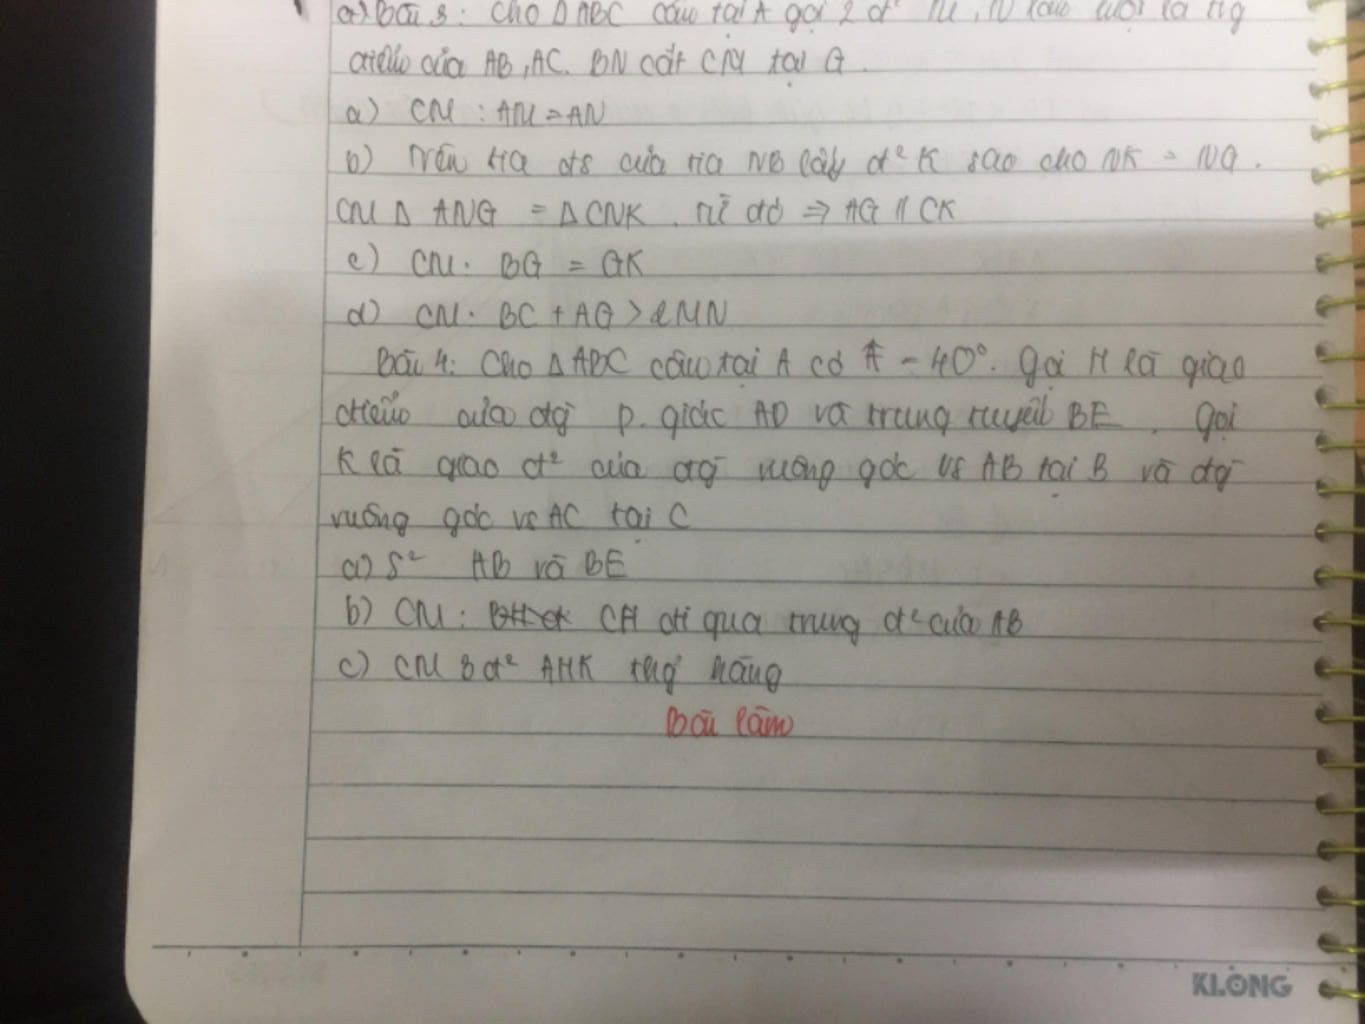 Bài 3: Cho Δ ABC cân tại A gọi 2 đ² M, N lần lượt là trg
điểm của AB, AC. BN cắt CM tại G.
a) CM : AM = AN
b) Trên tia đs của tia NB lấy đ² K sao cho NK = NG.
CM Δ ANG = Δ CNK. Từ đó ⇒ AG // CK
c) CM: BG = GK
d) CM: BC + AG > 2MN
Bài 4: Cho Δ ABC cân tại A có Â = 40°. Gọi H là giao
điểm của đg p. giác AD và trung tuyến BE. Gọi
K là giao đ² của đg vuông góc vs AB tại B và đg
vuông góc vs AC tại C
a) S² AB và BE
b) CM: CH đi qua trung đ² của AB
c) CM 3 đ² AHK thg hàng
Bài làm
KLONG